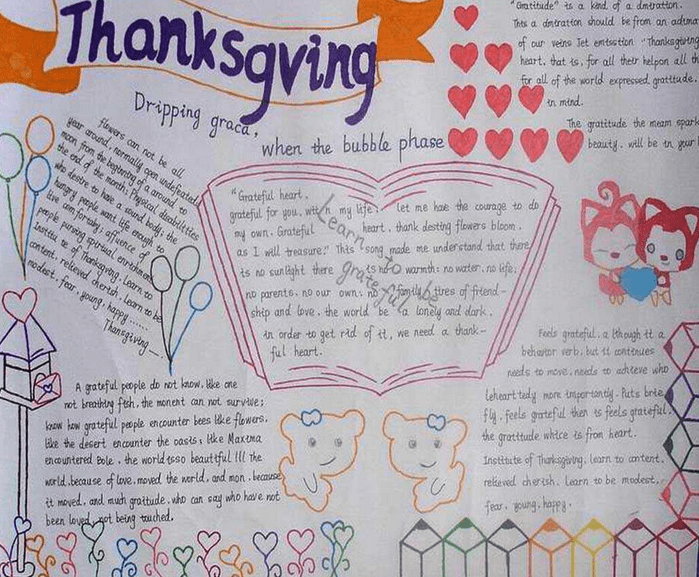 Thanksgving
Dripping graca,
when the bubble phase
"Gratitude" is a kind of a dmtration.
This a dmtration should be from an
of our veins Jet emitsstion "Thanksgiving
heart, that is, for all their helpon all th
for all of the world expressed gratitude,
in mind.
The gratitude the meam spark
beauty. will be in year
flowers can not be all
year around, normally open undefeated,
moon from the beginning of a around to
the end of the month; Physical disabilities
who desire to have a sound body; the
hungry people want life enough to
live comfortably; affluence of
people pursing spiritual enrichment
Institu te of Thanksgiving, Learn to
content, relieved cherish, learn to be
modest, fear, young, happy ......
Thanksgiving
"Grateful heart,
grateful for you, with n my life, let me hae the courage to do
my own. Grateful heart, thank desting flowers bloom,
as I will treasure." This song made me understand that there
is no sunlight there is no warmth; no water, no life;
no parents, no our own; no family, tires of friend-
ship and love, the world be a lonely and dark.
in order to get rid of it, we need a thank-
ful heart.
Learn to be grateful
A grateful people do not know, like one
not breathing fish, the monent can not survive;
know how grateful people encounter bees like flowers,
like the desert encounter the oasts, like Maxima
encountered Bole, the world isso beautiful !!! the
world, because of love, moved the world, and mon, because
it moved, and much graitude, who can say who have not
been loved, not being touched.
Feels grateful, a lthough it a
behavior verb, but it continues
needs to move, needs to achieve who
Leheart tedly more importantly. Puts brie
fly, feels grateful then is feels grateful,
the gratitude whice is from heart.
Institute of Thanksgiving, learn to content,
relieved cherish. Learn to be modest,
fear, young, happy.